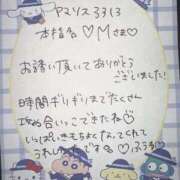 アマソス3313
本指名♡Mさま♡
お誘い頂いてありがとう
ございました!
時間ギリギリまでたくさん
攻め合いっこできたね♡
いっぱいきもちよくなってくれて
うれしかったです♡